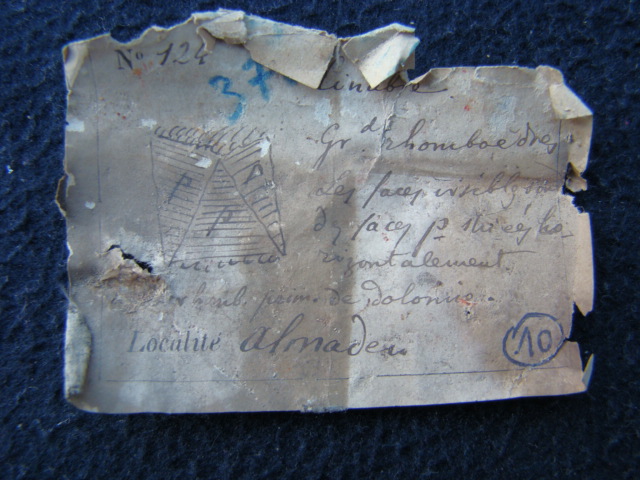 No 124
37
Cinabre
Grds rhomboèdres
Les faces visibles sont
des faces p striées ho-
rizontalement.
p
p
p
rhomb. prim. de dolomie.
Localité Almaden
10